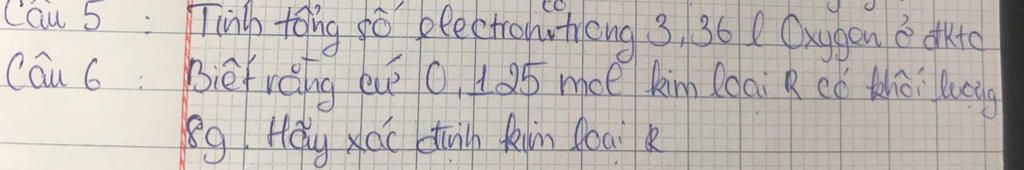 Câu 5 : Tính tổng số electron có trong 3,36 l Oxygen ở đktc
Câu 6 : Biết rằng cứ 0,125 mol kim loại R có khối lượng
8g. Hãy xác định kim loại R